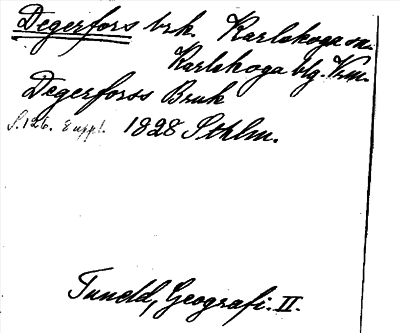 Degerfors brk. Karlskoga sn.
Karlskoga blg. Vrm.
Degerforss Bruk
S. 126. Suppl. 1828 Sthlm.
Tuneld, Geografi. II.